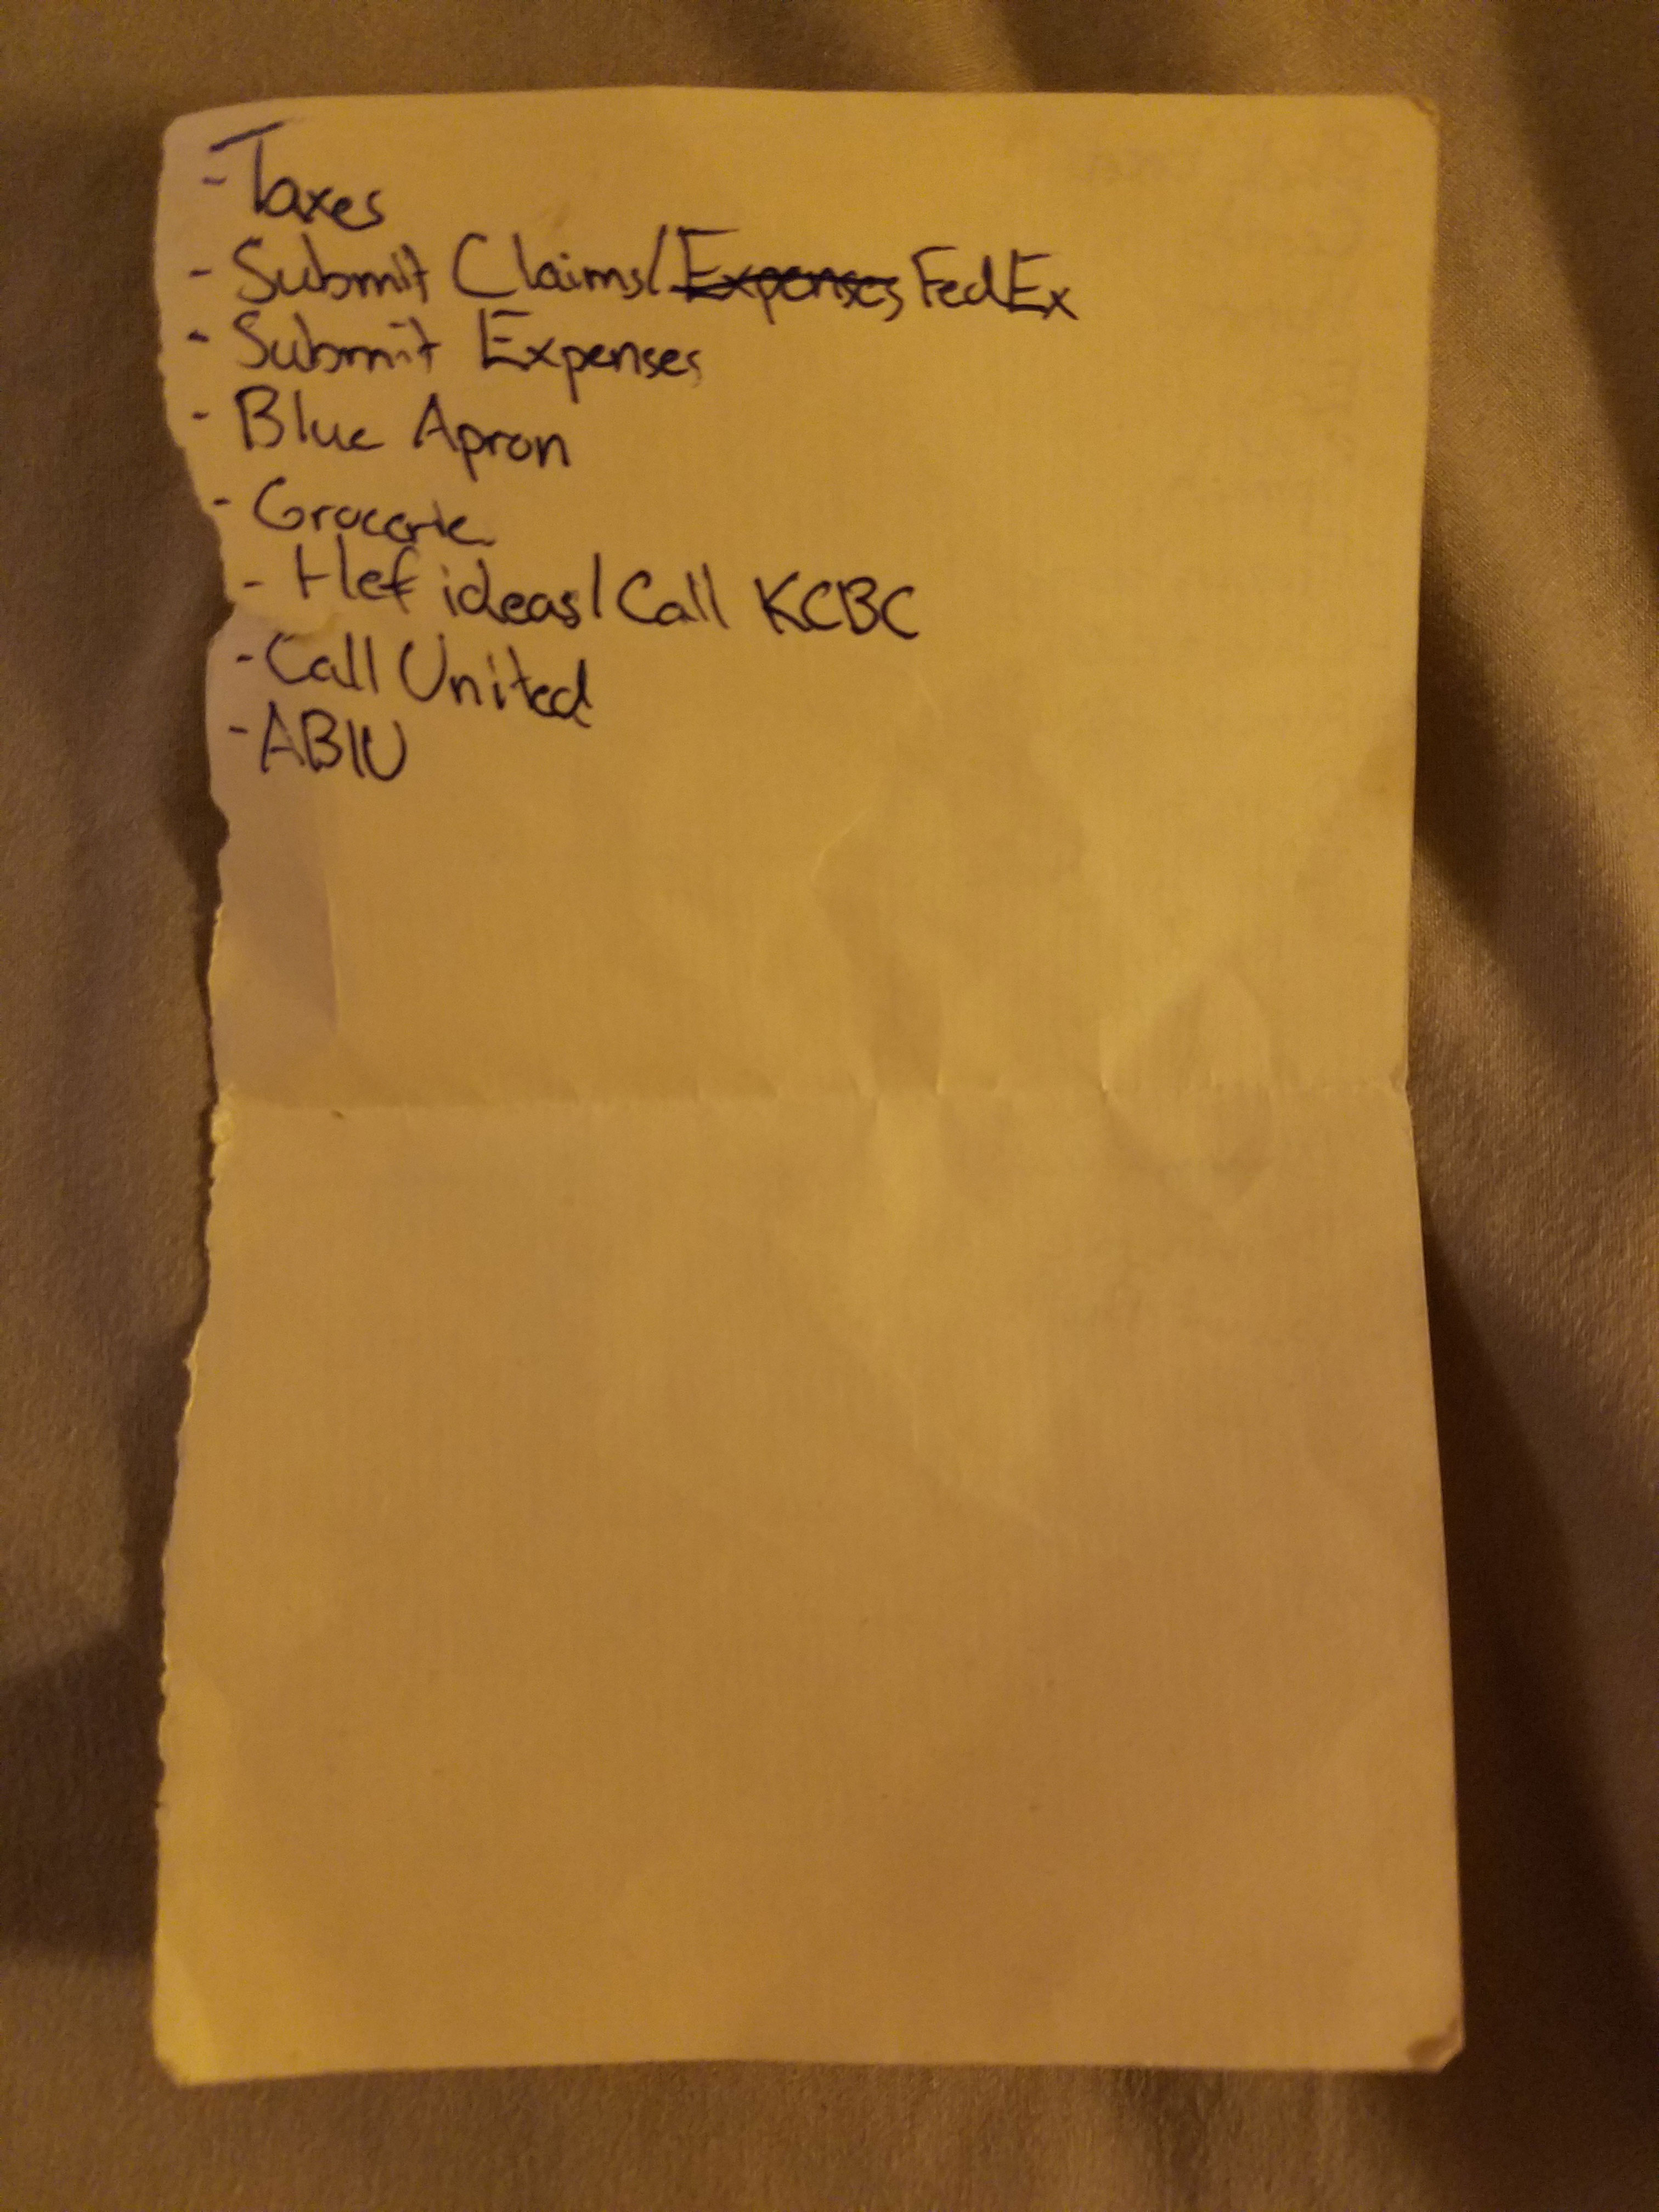 - Taxes
- Submit Claims/Expenses FedEx
- Submit Expenses
- Blue Apron
- Grocerie
- Hef ideas/Call KCBC
- Call United
- ABIU